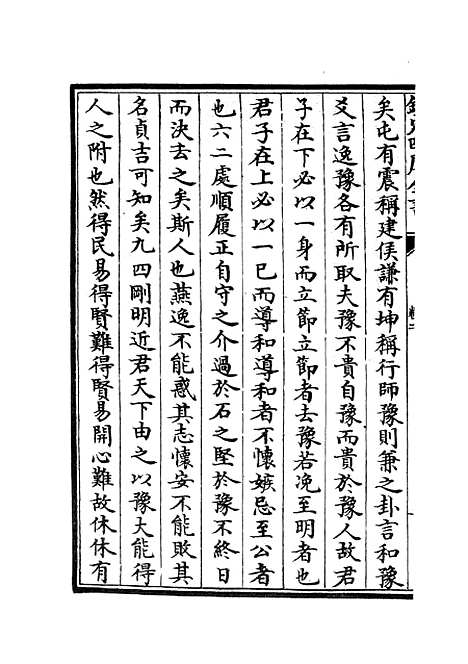 矣屯有震稱建侯謙有坤稱行師豫則兼之卦言和豫
爻言逸豫各有所取夫豫不貴自豫而貴於豫人故君
子在下必以一身而立節立節者去豫若浼至明者也
君子在上必以一已而導和導和者不懷嫉忌至公者
也六二處順履正自守之介過於石之堅於豫不終日
而決去之矣斯人也燕逸不能惑其志懷安不能敗其
名貞吉可知矣九四剛明近君天下由之以豫大能得
人之附也然得民易得賢難得賢易開心難故休休有